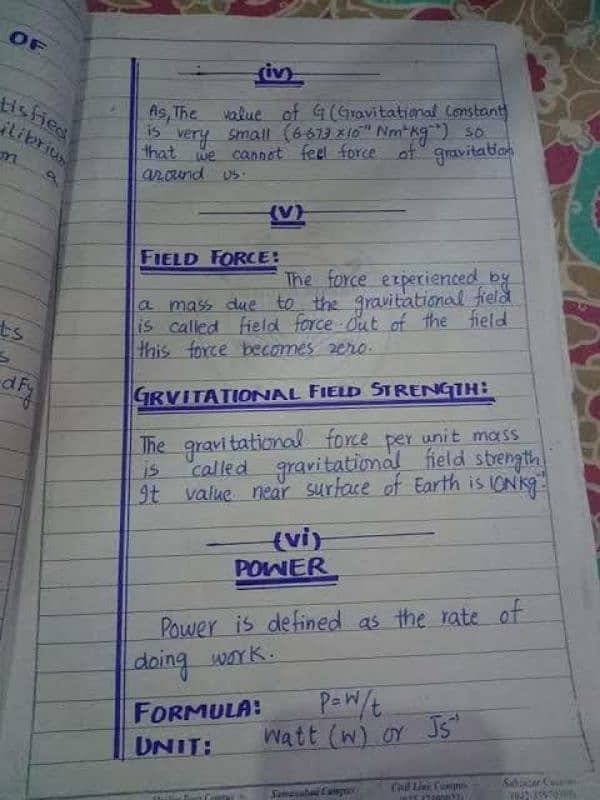 OF
tisfied
ilibrium
m a
ts
s
dFy
(iv)
As, The value of G (Gravitational Constant)
is very small (6.673 x10⁻¹¹ Nm²kg⁻²) so
that we cannot feel force of gravitation
around us.
(V)
FIELD FORCE:
The force experienced by
a mass due to the gravitational field
is called field force. Out of the field
this force becomes zero.
GRVITATIONAL FIELD STRENGTH:
The gravitational force per unit mass
is called gravitational field strength.
It value near surface of Earth is 10Nkg⁻¹.
(vi)
POWER
Power is defined as the rate of
doing work.
FORMULA: P=W/t
UNIT: Watt (W) or Js⁻¹
Samanabad Campus
Civil Line Campus